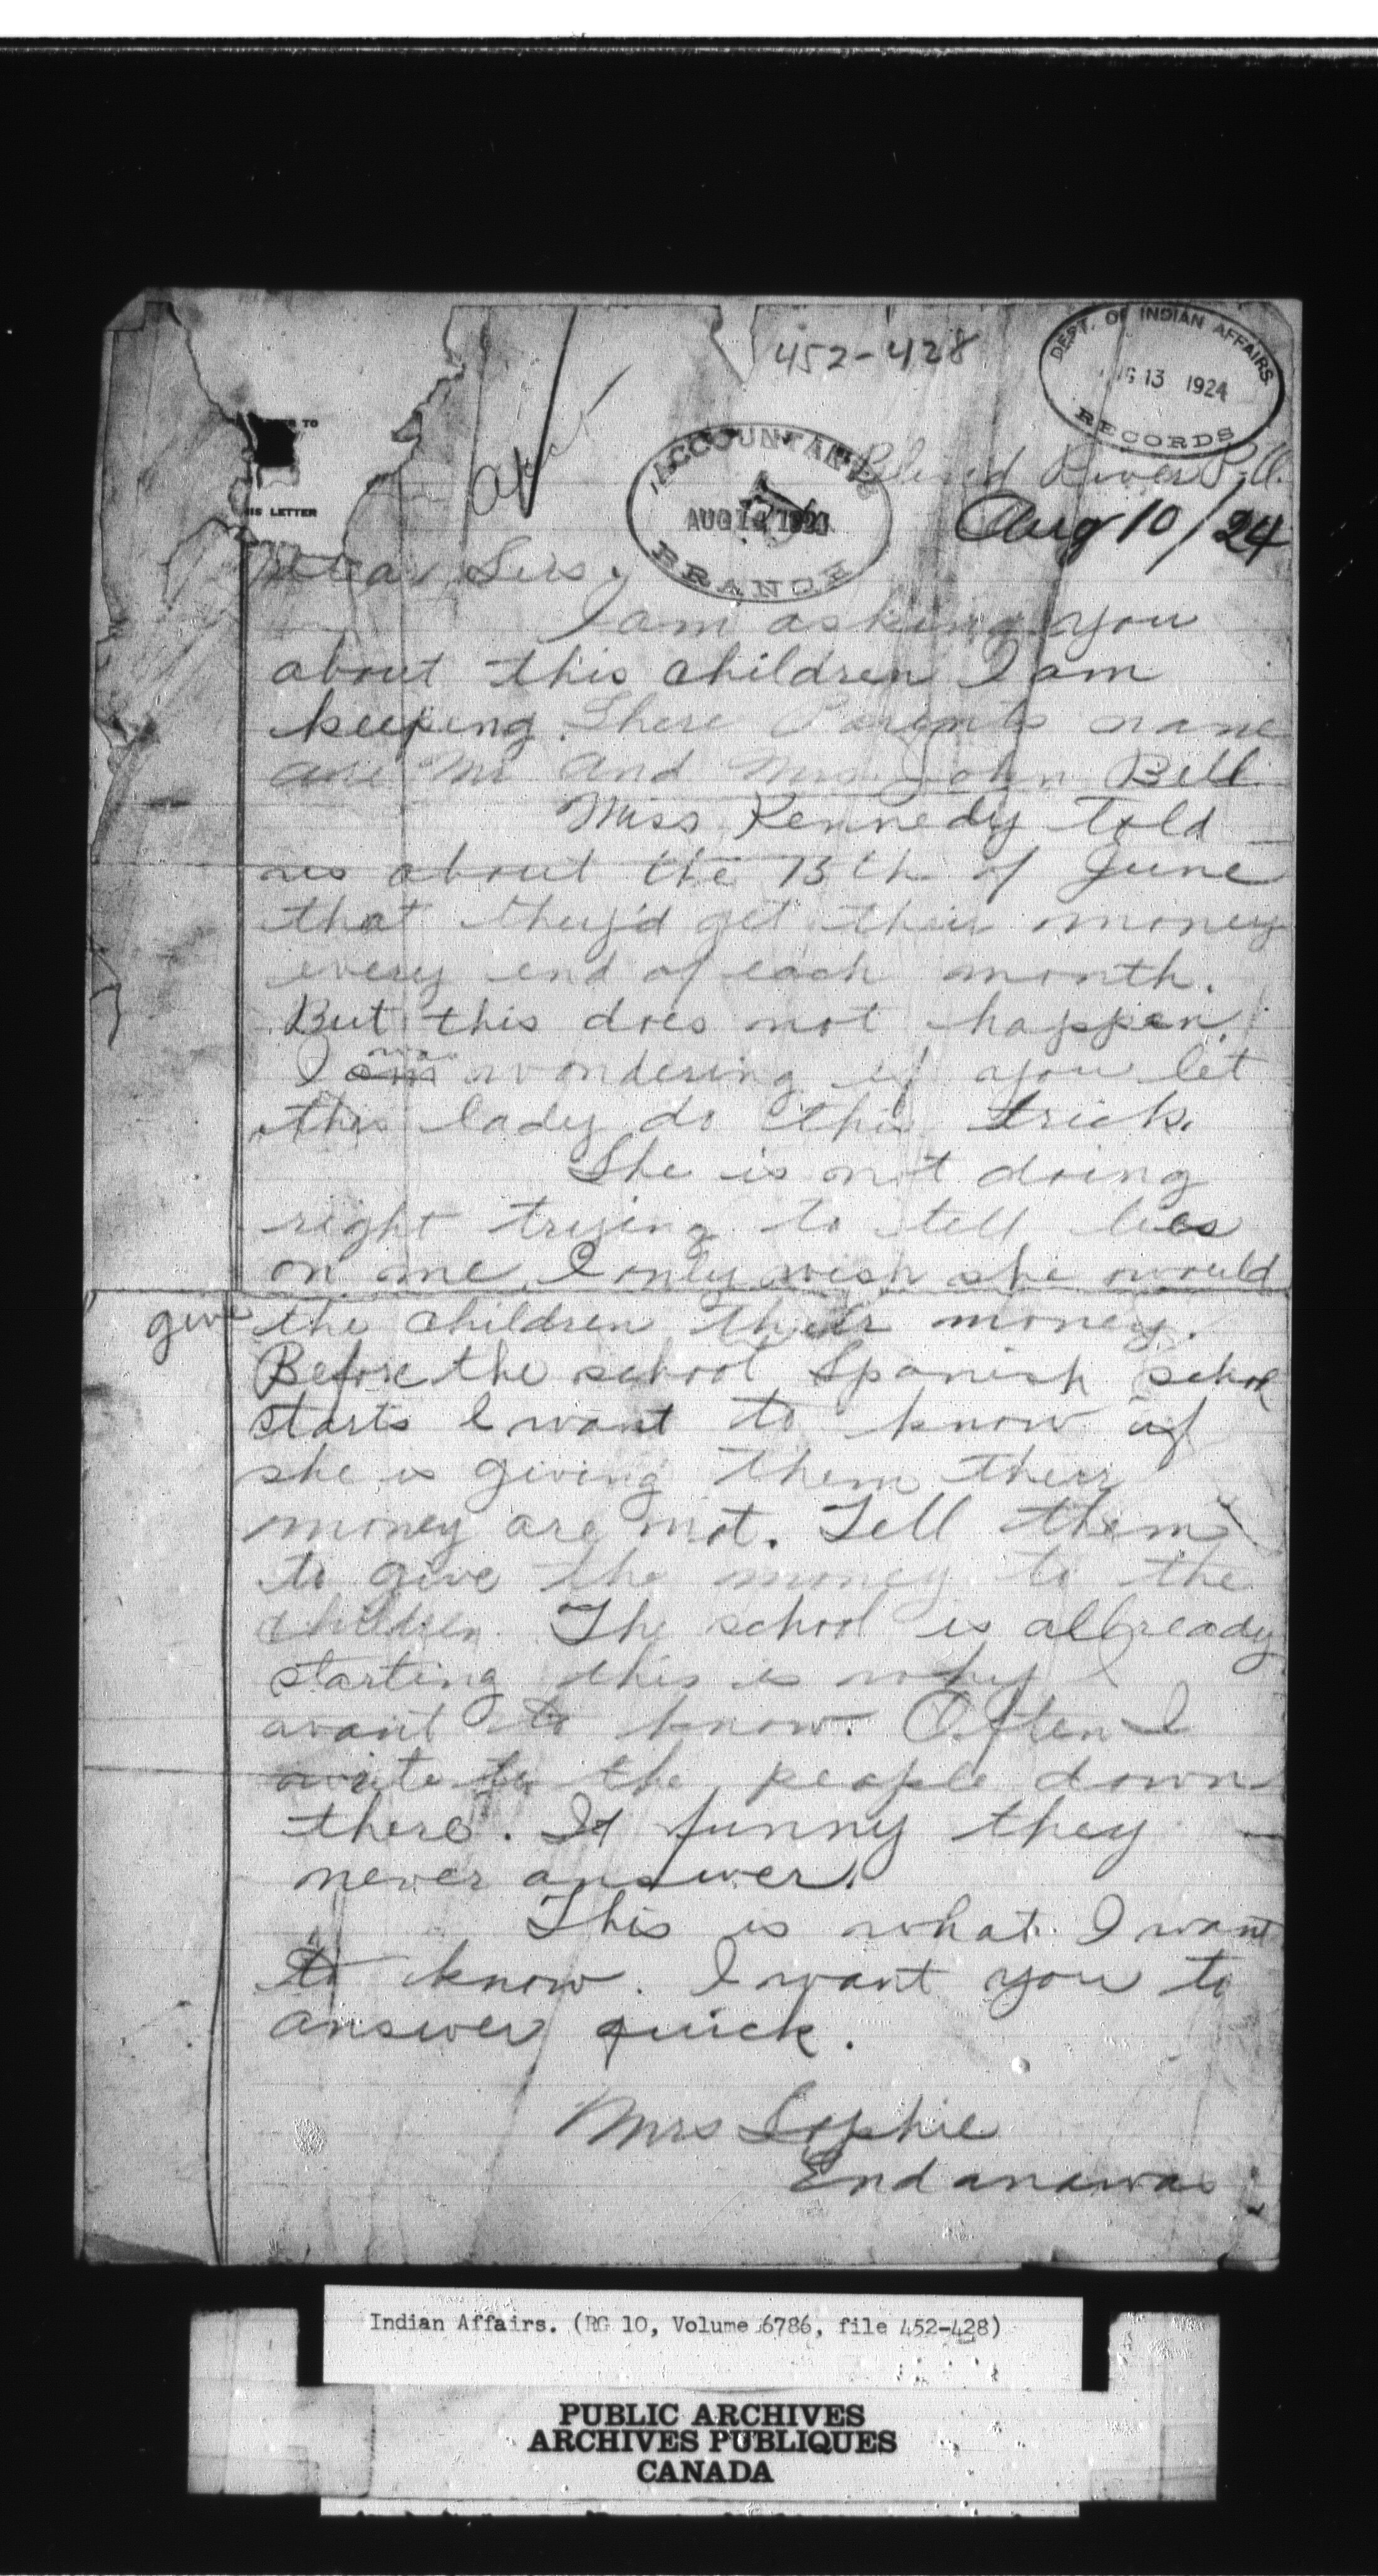 452-428
DEPT. OF INDIAN AFFAIRS
AUG 13 1924
RECORDS
TO
IS LETTER
ACCOUNTANT'S
AUG 14 1924
BRANCH
Blind River P.O.
Aug 10/24
Dear Sirs,
I am asking you
about this children I am
keeping. There Parents name
are Mr and Mrs John Bell
Miss Kennedy told
us about the 13th of June
that they'd get their money
every end of each month.
But this does not happen.
I wondering if you let
this lady do this trick.
She is not doing
right trying to tell lies
on me. I only wish she would
give the children their money.
Before the school Spanish school
starts I want to know if
she is giving them their
money are not. Tell them
to give the money to the
children. The school is allready
starting this is why I
want to know. Often I
write to the people down
there. It funny they
never answer.
This is what I want
to know. I want you to
answer quick.
Mrs Sophie
Endanawas
Indian Affairs. (RG 10, Volume 6786, file 452-428)
PUBLIC ARCHIVES
ARCHIVES PUBLIQUES
CANADA